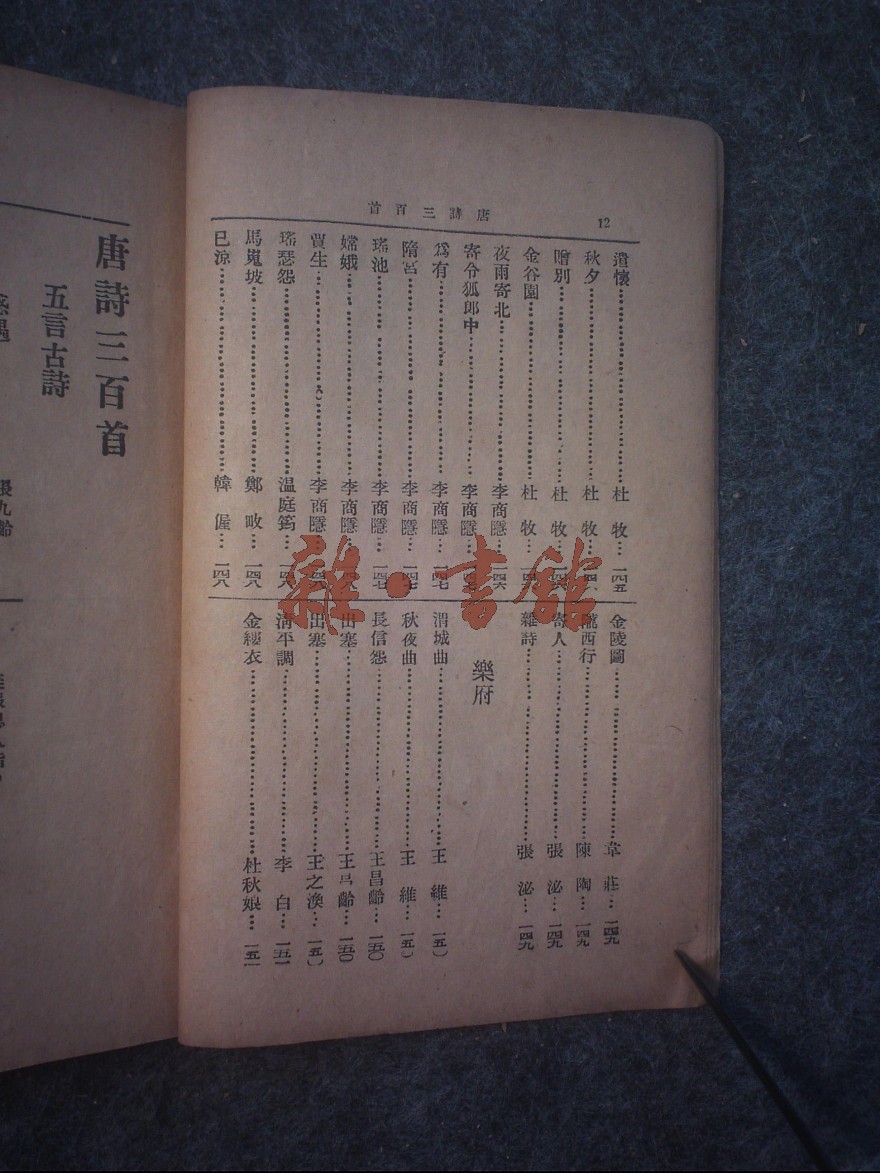 唐詩三百首
12
遣懷 杜牧 一四五
秋夕 杜牧
贈別 杜牧
金谷園 杜牧
夜雨寄北 李商隱 一四六
寄令狐郎中 李商隱
爲有 李商隱 一四七
隋宮 李商隱 一四七
瑤池 李商隱 一四七
嫦娥 李商隱
賈生 李商隱
瑤瑟怨 温庭筠
馬嵬坡 鄭畋 一四八
已涼 韓偓 一四八
金陵圖 韋莊 一四九
隴西行 陳陶 一四九
寄人 張泌 一四九
雜詩 張泌 一四九
樂府
渭城曲 王維 一五〇
秋夜曲 王維 一五〇
長信怨 王昌齡 一五〇
出塞 王昌齡 一五〇
出塞 王之渙 一五〇
清平調 李白 一五一
金縷衣 杜秋娘 一五一
雜·書館
唐詩三百首
五言古詩
張九齡